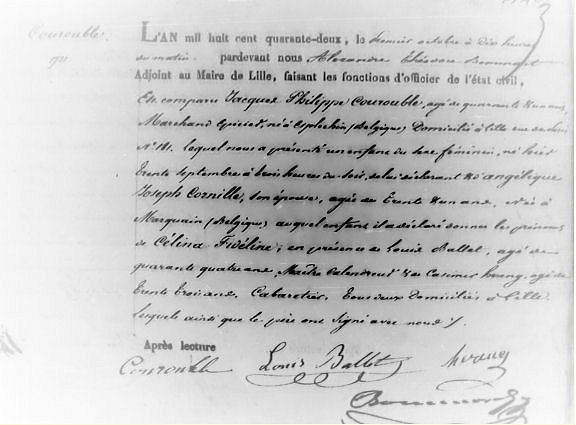 Courouble
L'AN mil huit cent quarante-deux, le premier octobre à dix heures
du matin. pardevant nous Alexandre Théodore
Adjoint au Maire de Lille, faisant les fonctions d'officier de l'état civil,
Est comparu Jacques Philippe Courouble, agé de quarante un ans,
Marchand Epicier, né à Esplechin (Belgique) Domicilié à Lille rue de
N° 181. lequel nous a présenté un enfant du sexe féminin, né hier
trente septembre à trois heures du soir, de lui déclarant & d'angélique
Joseph Cornille, son épouse, agée de trente un ans, née à
Marquain (Belgique) auquel enfant il a déclaré donner les prénoms
de Célina Fidéline; en présence de Louis Ballet, agé de
quarante quatre ans, Maître Calendreur & de Casimir agé de
trente trois ans. Cabaretier, tous deux Domiciliés à Lille
lesquels ainsi que le père ont signé avec nous /.
Après lecture
Courouble Louis Ballet